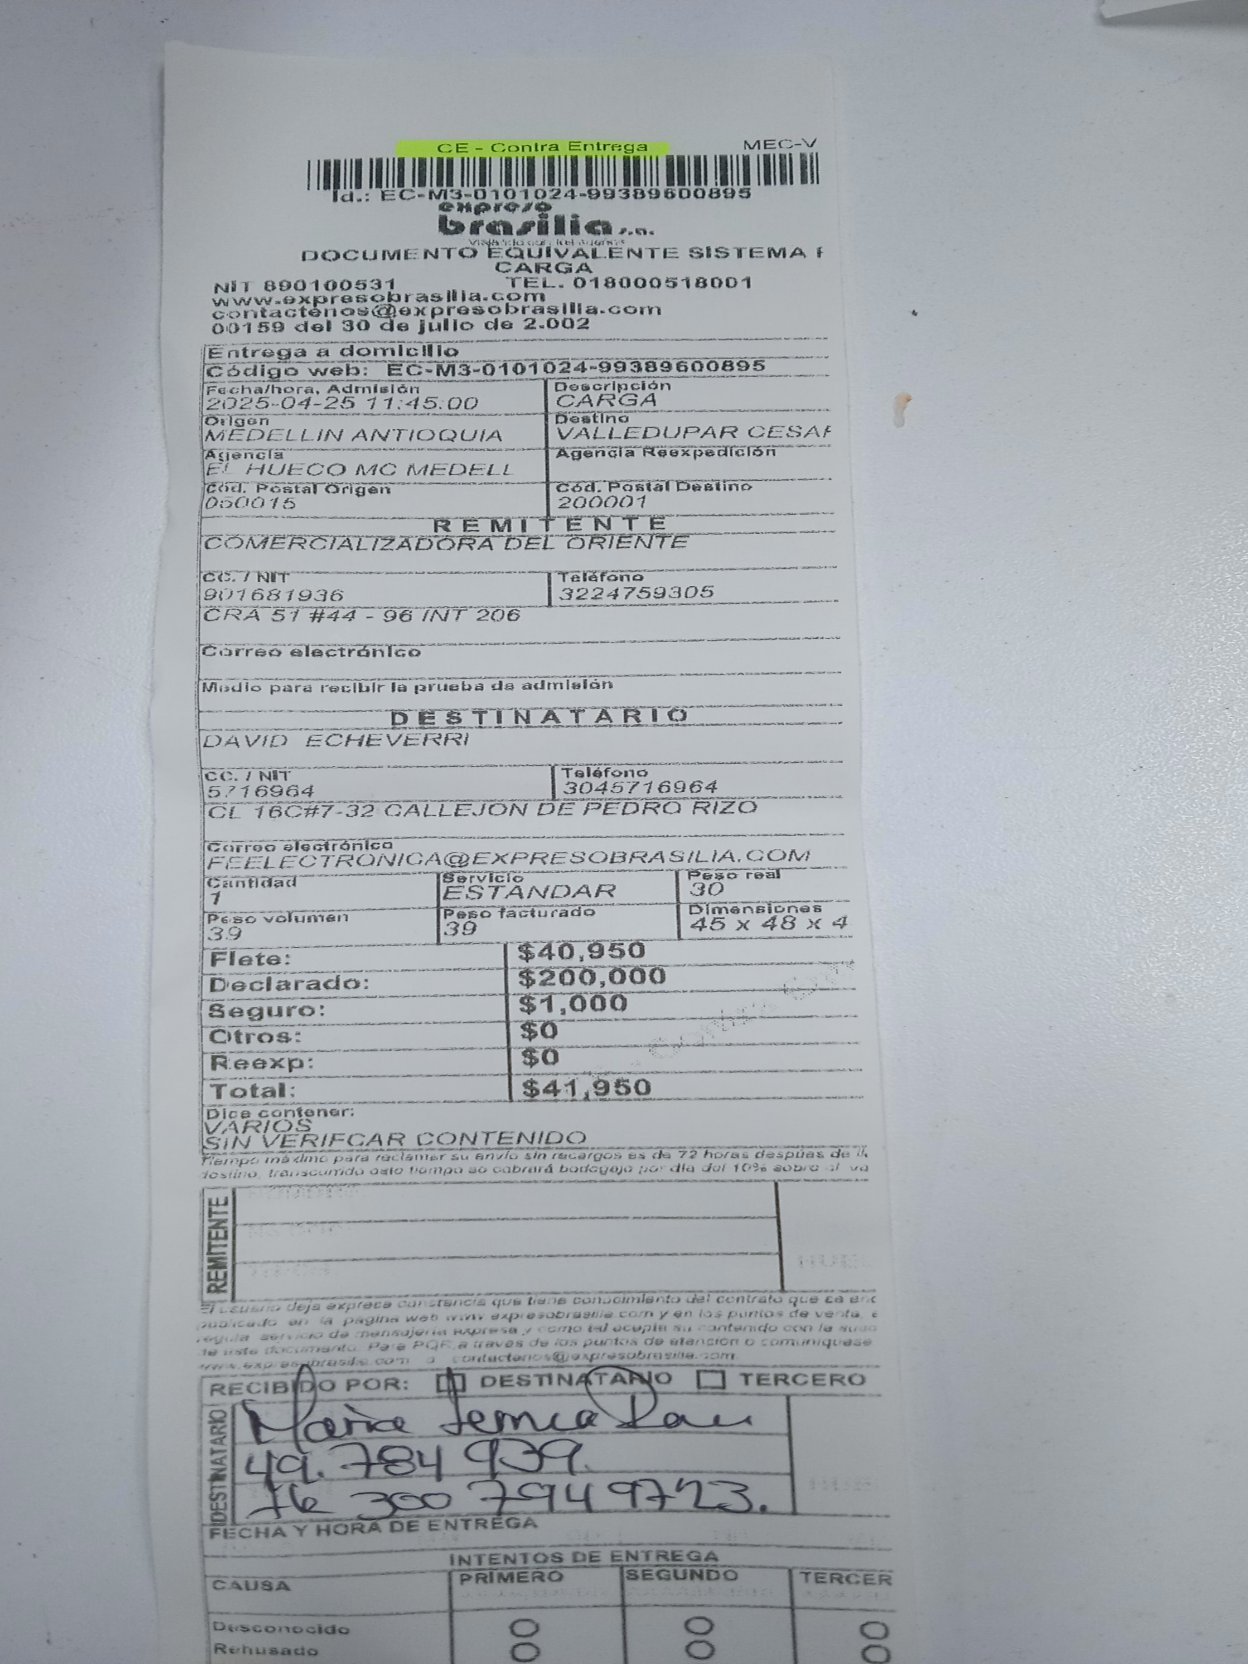 CE - Contra Entrega
MEC-V
Id.: EC-M3-0101024-99389600895
expreso
brasilia s.a.
DOCUMENTO EQUIVALENTE SISTEMA
CARGA
NIT 890100531 TEL. 018000518001
www.expresobrasilia.com
contactenos@expresobrasilia.com
00159 del 30 de julio de 2.002
Entrega a domicilio
Código web: EC-M3-0101024-99389600895
Fecha/hora, Admisión Descripción
2025-04-25 11:45:00 CARGA
Origen Destino
MEDELLIN ANTIOQUIA VALLEDUPAR CESAR
Agencia Agencia Reexpedición
EL HUECO MC MEDELL
Cód. Postal Origen Cód. Postal Destino
050015 200001
REMITENTE
COMERCIALIZADORA DEL ORIENTE
CC. / NIT Teléfono
901681936 3224759305
CRA 51 #44 - 96 INT 206
Correo electrónico
Medio para recibir la prueba de admisión
DESTINATARIO
DAVID ECHEVERRI
CC. / NIT Teléfono
5716964 3045716964
CL 16C#7-32 CALLEJON DE PEDRO RIZO
Correo electrónico
FEELECTRONICA@EXPRESOBRASILIA.COM
Cantidad Servicio Peso real
1 ESTANDAR 30
Peso volumen Peso facturado Dimensiones
39 39 45 x 48 x 4
Flete: $40,950
Declarado: $200,000
Seguro: $1,000
Otros: $0
Reexp: $0
Total: $41,950
Dice contener:
VARIOS
SIN VERIFCAR CONTENIDO
Tiempo máximo para reclamar su envío sin recargos es de 72 horas despúas de
destino, transcurrido este tiempo se cobrará bodegaje por día del 10% sobre el va
REMITENTE
El usuario deja expresa constancia que tiene conocimiento del contrato que se enc
publicado en la página web www expresobrasilia com y en los puntos de venta,
regula servicio de mensajería expresa y como tal acepta su contenido con la susc
de este documento. Para PQR a traves de los puntos de atención o comuniquese
www.expresobrasilia.com o contactenos@expresobrasilia.com.
RECIBIDO POR: DESTINATARIO TERCERO
DESTINATARIO
Maria
49.784 939.
300 7949723.
FECHA Y HORA DE ENTREGA
INTENTOS DE ENTREGA
CAUSA PRIMERO SEGUNDO TERCER
Desconocido
Rehusado